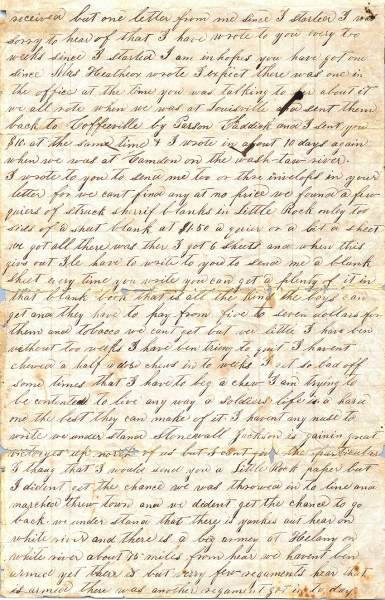 received but one letter from me since I started I was
sorry to hear of that I have wrote to you every too
weeks since I started I am in hopes you have got one
since Mrs Heathcox wrote I expect there was one in
the office at the time you was talking to her about it
we all rote when we was at Louisville and sent them
back to Coffeeville by Parson Faddock and I sent you
$10. at the same time & I wrote in about 10 days again
when we was at Camdon on the wash-law-river.
I wrote to you to send me too or three invelops in your
letter for we cant find any at no price we found a few
quiers of struck sherrif blanks in Little Rock onley too
sids of a shat blank at $1.50 a quier or a bit a sheet
we got all there was ther I got 6 sheets and when this
givs out Ile have to write to you to send me a blank
sheet every time you write you can get a plenty of it in
that blank book that is all the kind the boys can
get and they have to pay from five to seven dollars for
them and tobacco we cant get but vere little I have ben
without too weeks I have ben triing to quit I havent
chewed a half a dose chews in to weeks I get so bad off
some times that I have to beg a chew I am trying to
be contented to live any way a soldiers life is a hard
one the best they can make of it I havent any nuse to
write we under stand Stonewall Jackson is gainin great
victorys up north of us but I cant get the particulars
I thaug that I would send you a Little Rock paper but
I dident get the chance we was throwed in to line and
marched threw town and we dident get the chance to go
back. we under stand that there is yankes out hear on
white river and there is a big armey at Helany on
white river about 75 miles from hear we havent ben
armed yet thare is but very few regaments hear that
is armed there was another regament got in to day